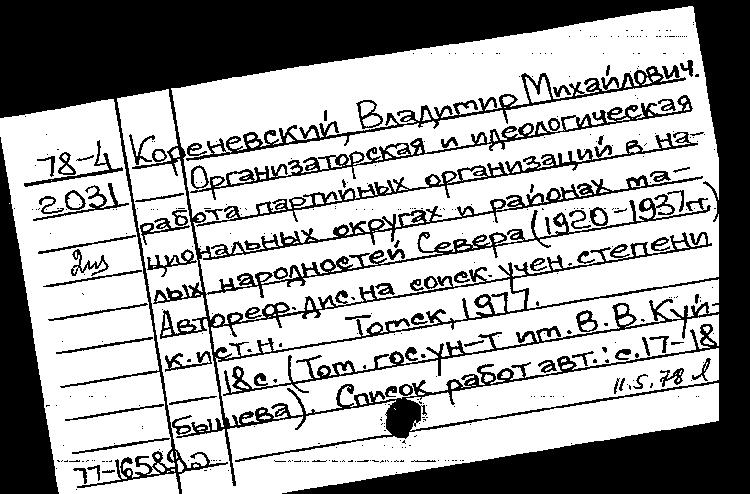 78-4
2031
Кореневский, Владимир Михайлович.
Организаторская и идеологическая
работа партийных организаций в на-
циональных округах и районах ма-
лых народностей Севера (1920-1937гг.)
Автореф. дис. на соиск. учен. степени
к.ист.н. Томск, 1977.
18с. (Том. гос. ун-т им. В. В. Куй-
бышева). Список работ авт.: с. 17-18
11.5.78
77-16589